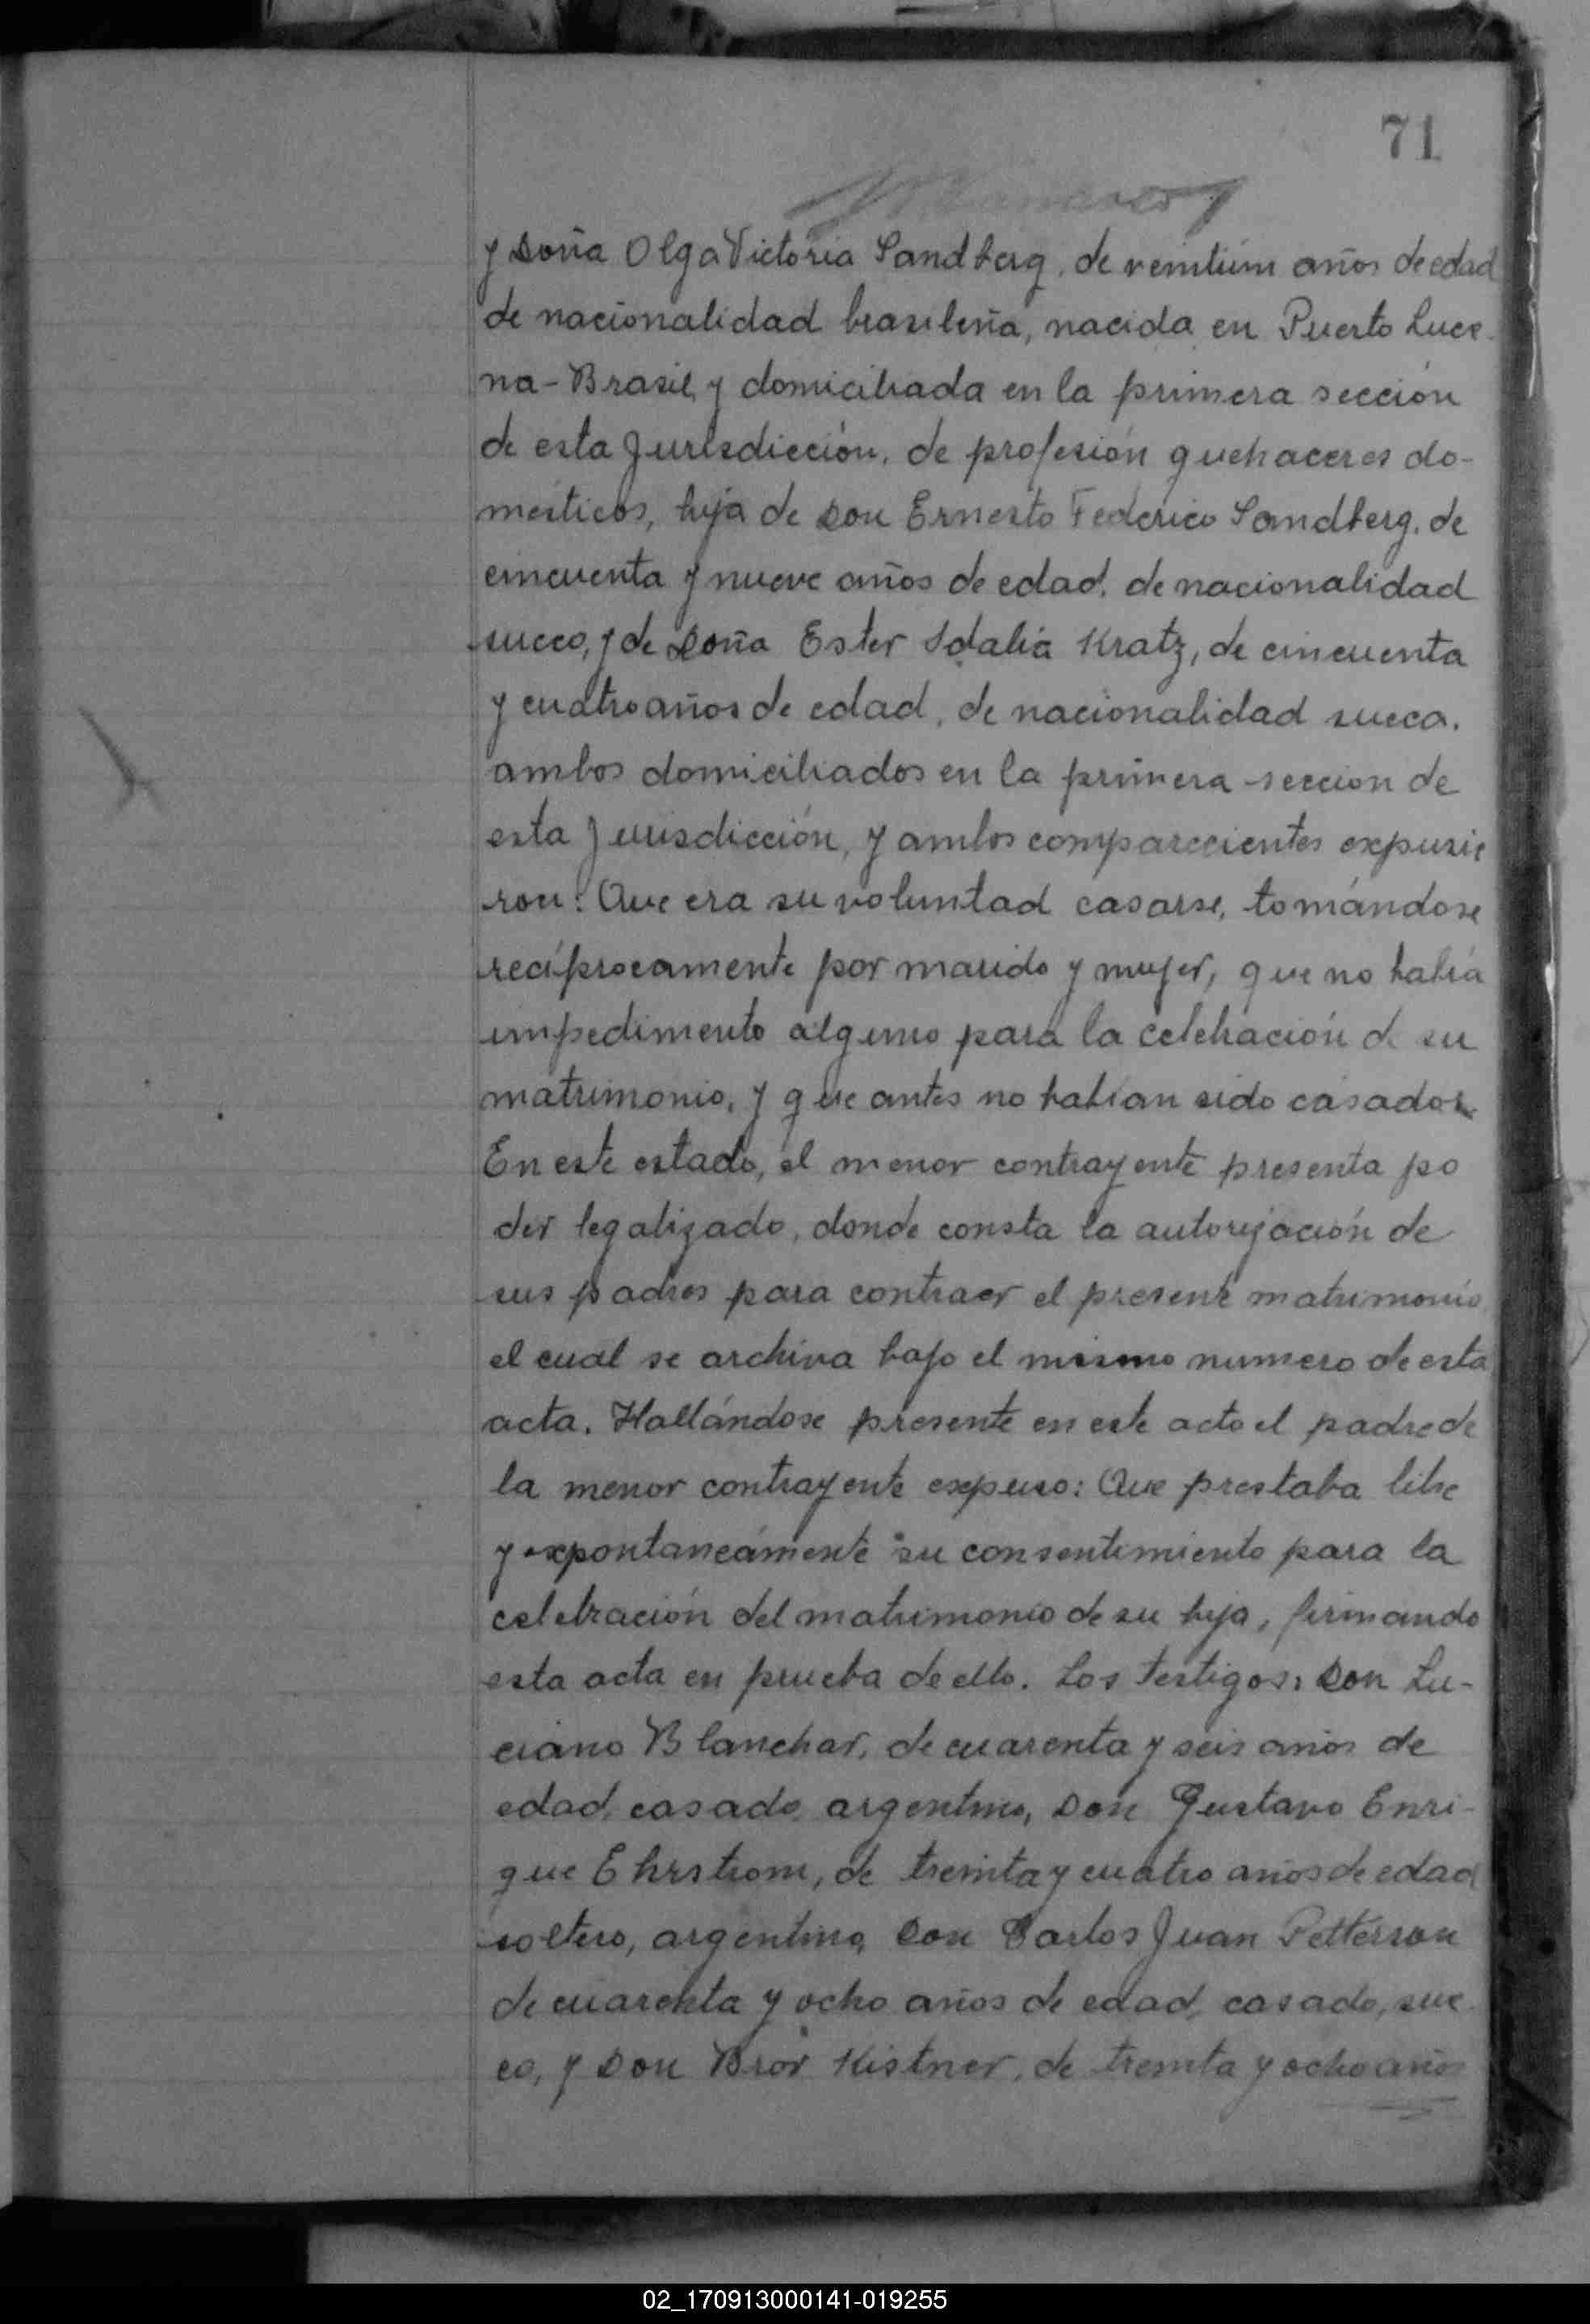 71
y Doña Olga Victoria Sandberg, de veintiún años de edad
de nacionalidad brasileña, nacida en Puerto Luce-
na-Brasil, y domiciliada en la primera sección
de esta Jurisdicción, de profesión quehaceres do-
mésticos, hija de Don Ernesto Federico Sandberg, de
cincuenta y nueve años de edad, de nacionalidad
sueco, y de Doña Ester Idalia Kratz, de cincuenta
y cuatro años de edad, de nacionalidad sueca.
ambos domiciliados en la primera seccion de
esta Jurisdicción, y ambos comparecientes expusie
ron: Que era su voluntad casarse, tomándose
recíprocamente por marido y mujer, que no había
impedimento alguno para la celebración de su
matrimonio, y que antes no habían sido casados.
En este estado, el menor contrayente presenta po
der legalizado, donde consta la autorización de
sus padres para contraer el presente matrimonio
el cual se archiva bajo el mismo numero de esta
acta. Hallándose presente en este acto el padre de
la menor contrayente expuso: Que prestaba libre
y expontaneámente su consentimiento para la
celebración del matrimonio de su hija, firmando
esta acta en prueba de ello. Los testigos: Don Lu-
ciano Blanchar, de cuarenta y seis años de
edad, casado, argentino, Don Gustavo Enri-
que Ehrstrom, de treinta y cuatro años de edad
soltero, argentino, Don Carlos Juan Petterson
de cuarenta y ocho años de edad, casado, sue-
co, y Don Bror Kistner, de treinta y ocho años
02_170913000141-019255